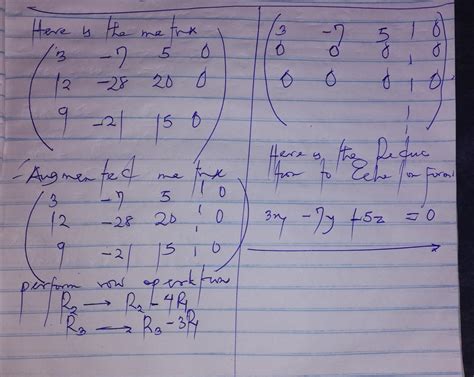 Here is the matrix
3 -7 5 0
12 -28 20 0
9 -21 15 0
Augmented matrix
3 -7 5 | 0
12 -28 20 | 0
9 -21 15 | 0
perform row operation
R2 → R2 - 4R1
R3 → R3 - 3R1
3 -7 5 | 0
0 0 0 | 0
0 0 0 | 0
Here is the Reduc
tion to Echelon form
3x - 7y + 5z = 0